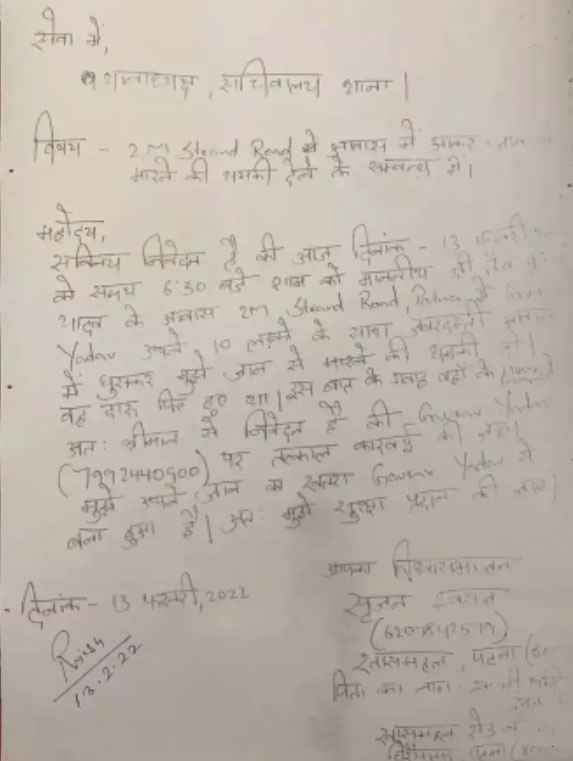 सेवा में,
थानाध्यक्ष, सचिवालय थाना |
विषय - 2.M Strand Road में आवास में आकर, जान
मारने की धमकी देने के सम्बन्ध में।
महोदय,
सविनय निवेदन है की आज दिनांक - 13 फरवरी
के समय 6:30 बजे शाम को माननीय श्री तेज
यादव के आवास 2M Strand Road, Patna में
Yadav अपने 10 लड़कों के साथ जबरदस्ती आवास
में घुसकर मुझे जान से मारने की धमकी दी।
वह दारू पिए हुए था। इस बात के गवाह वहाँ के
अतः श्रीमान से निवेदन है की Gaurav Yadav
(7992440500) पर तत्काल कारवाई की जाए।
मुझे अपने जान का खतरा Gaurav Yadav से
बना हुआ है। अतः मुझे सुरक्षा प्रदान की जाए।
आपका विश्वासभाजन
- दिनांक - 13 फरवरी, 2022
सृजन स्वराज
(6207842579)
13.2.22
खासमहल, पटना
पिता का नाम
खासमहल रोड